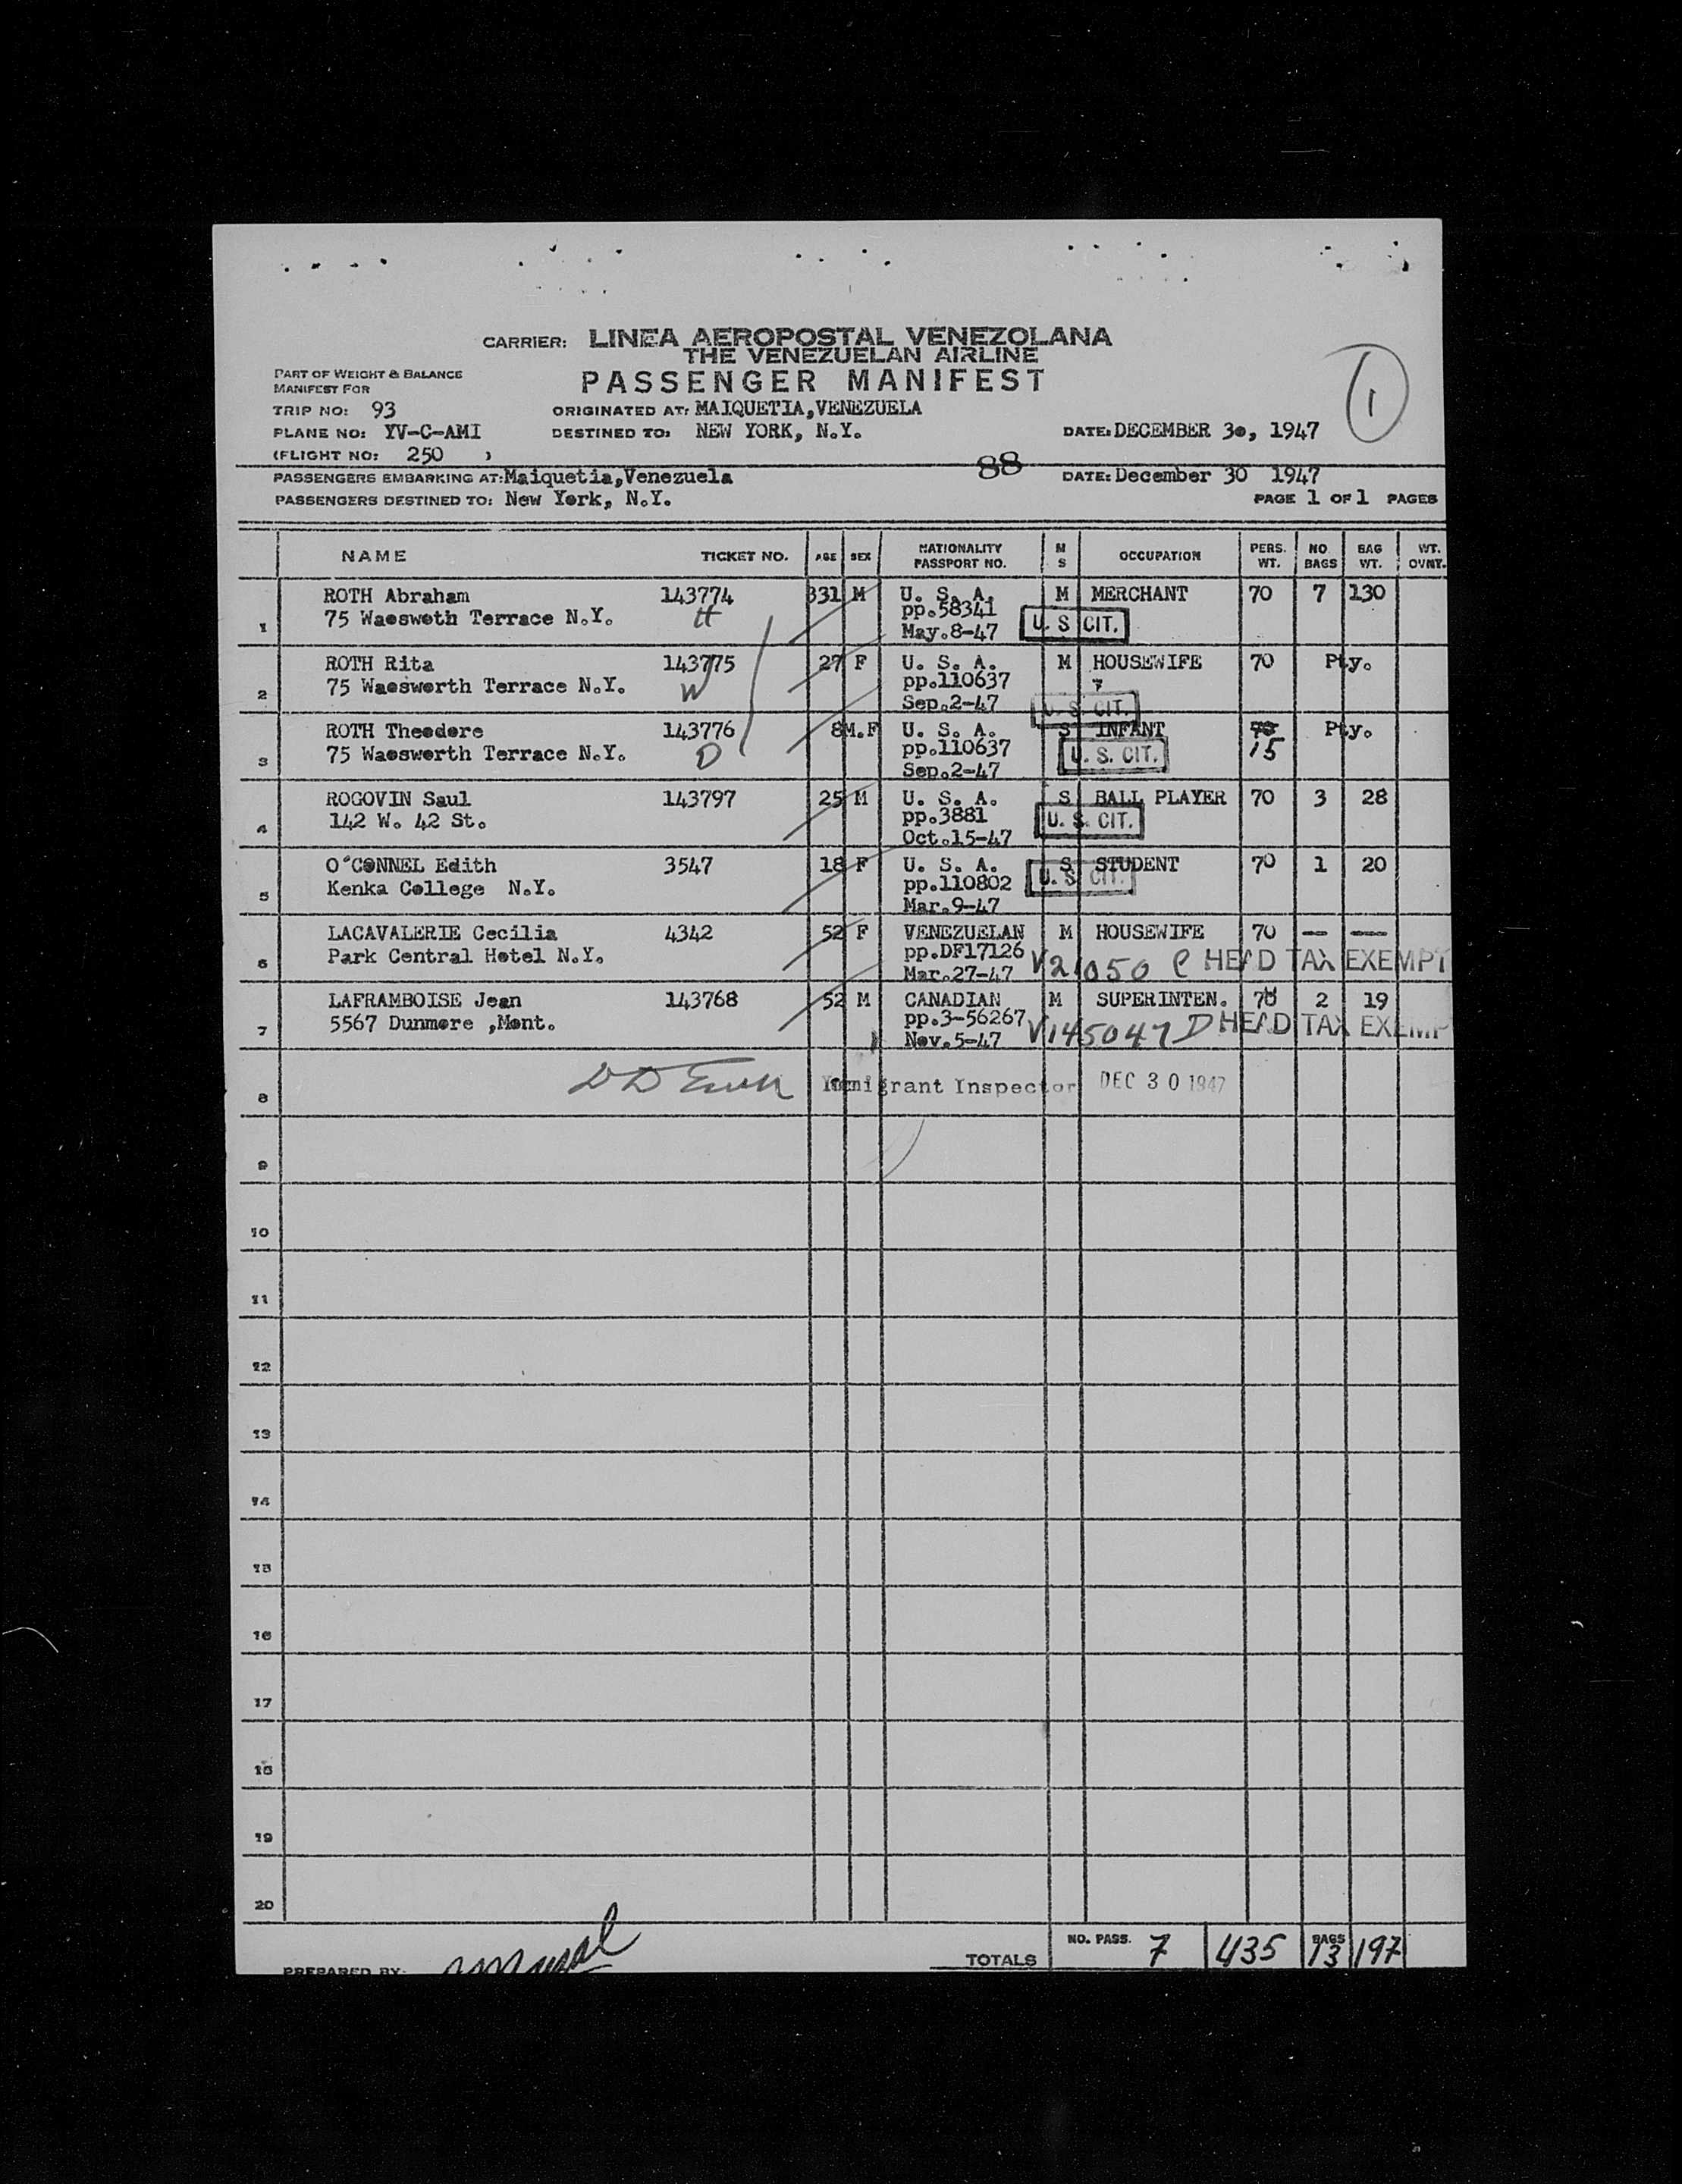 CARRIER: LINEA AEROPOSTAL VENEZOLANA
THE VENEZUELAN AIRLINE
PART OF WEIGHT & BALANCE
MANIFEST FOR
PASSENGER MANIFEST
1
TRIP NO: 93 ORIGINATED AT: MAIQUETIA,VENEZUELA
PLANE NO: YV-C-AMI DESTINED TO: NEW YORK, N.Y. DATE: DECEMBER 30, 1947
(FLIGHT NO: 250 )
88
PASSENGERS EMBARKING AT: Maiquetia,Venezuela DATE: December 30 1947
PASSENGERS DESTINED TO: New York, N.Y. PAGE 1 OF 1 PAGES
NAME TICKET NO. AGE SEX NATIONALITY PASSPORT NO. M S OCCUPATION PERS. WT. NO. BAGS BAG WT. WT. OVNT.
ROTH Abraham 143774 331 M U. S. A. M MERCHANT 70 7 130
1 75 Waosweth Terrace N.Y. H pp.58341
May.8-47 U. S. CIT.
ROTH Rita 143775 27 F U. S. A. M HOUSEWIFE 70 Pty.
2 75 Waosworth Terrace N.Y. W pp.110637 7
Sep.2-47 U. S. CIT.
ROTH Theodore 143776 8 M.F U. S. A. S INFANT 70 Pty.
3 75 Waosworth Terrace N.Y. D pp.110637 U. S. CIT. 15
Sep.2-47
ROGOVIN Saul 143797 25 M U. S. A. S BALL PLAYER 70 3 28
4 142 W. 42 St. pp.3881 U. S. CIT.
Oct.15-47
O'CONNEL Edith 3547 18 F U. S. A. S STUDENT 70 1 20
5 Kenka College N.Y. pp.110802 U. S. CIT.
Mar.9-47
LACAVALERIE Cecilia 4342 52 F VENEZUELAN M HOUSEWIFE 70 — —
6 Park Central Hotel N.Y. pp.DF17126
Mar.27-47 V21050 C HEAD TAX EXEMPT
LAFRAMBOISE Jean 143768 52 M CANADIAN M SUPERINTEN. 70 2 19
7 5567 Dunmore ,Mont. pp.3-56267
Nov.5-47 V145047 D HEAD TAX EXEMP
8 Immigrant Inspector DEC 30 1947
9
10
11
12
13
14
15
16
17
18
19
20
PREPARED BY: TOTALS NO. PASS. 7 435 BAGS 13 197